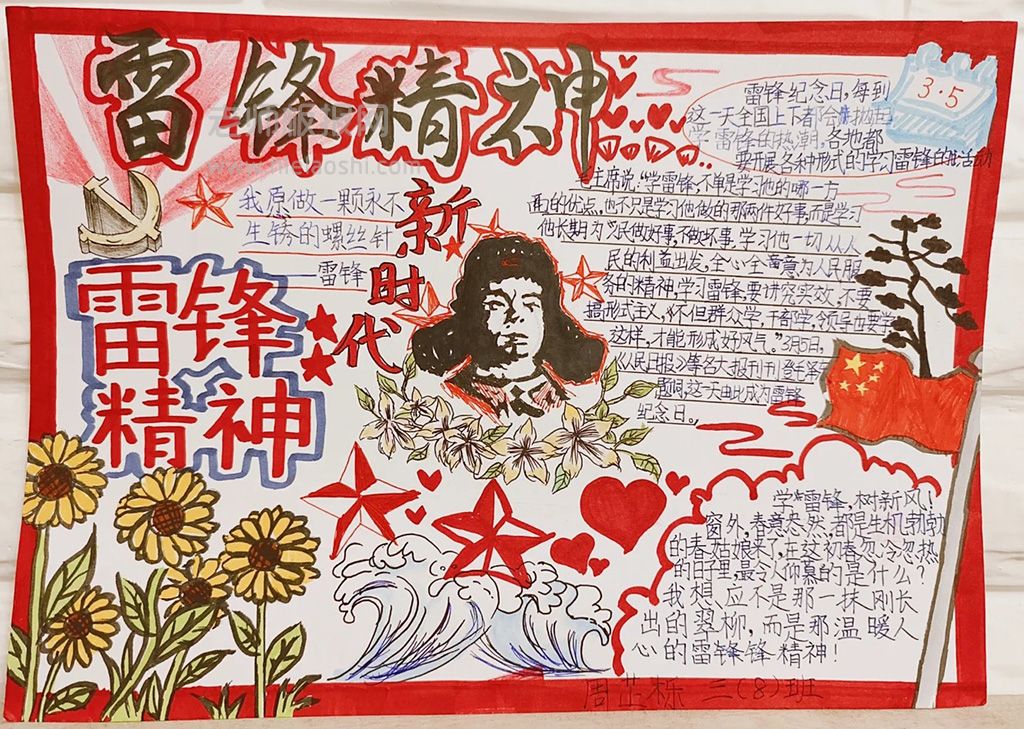 雷锋精神
3·5
雷锋纪念日，每到
这一天全国上下都会掀起
学雷锋的热潮，各地都
要开展各种形式的学习雷锋的活动
我愿做一颗永不
生锈的螺丝针
——雷锋
新时代
雷锋
精神
毛主席说："学雷锋，不单是学习他的哪一方
面的优点，也不只是学习他做的那两件好事，而是学习
他长期为人民做好事，不做坏事，学习他一切从人
民的利益出发，全心全意为人民服
务的精神，学习雷锋，要讲究实效，不要
搞形式主义，不但群众学，干部学，领导也要学
这样，才能形成好风气。"3月5日，
《人民日报》等各大报刊刊登毛泽东
题词，这一天由此成为雷锋
纪念日。
学雷锋，树新风！
窗外，春意盎然，都是生机勃勃
的春姑娘来了，在这初春忽冷忽热
的日子里，最令人仰慕的是什么？
我想，应不是那一抹刚长
出的翠柳，而是那温暖人
心的雷锋锋精神！
周芷栎 三(8)班